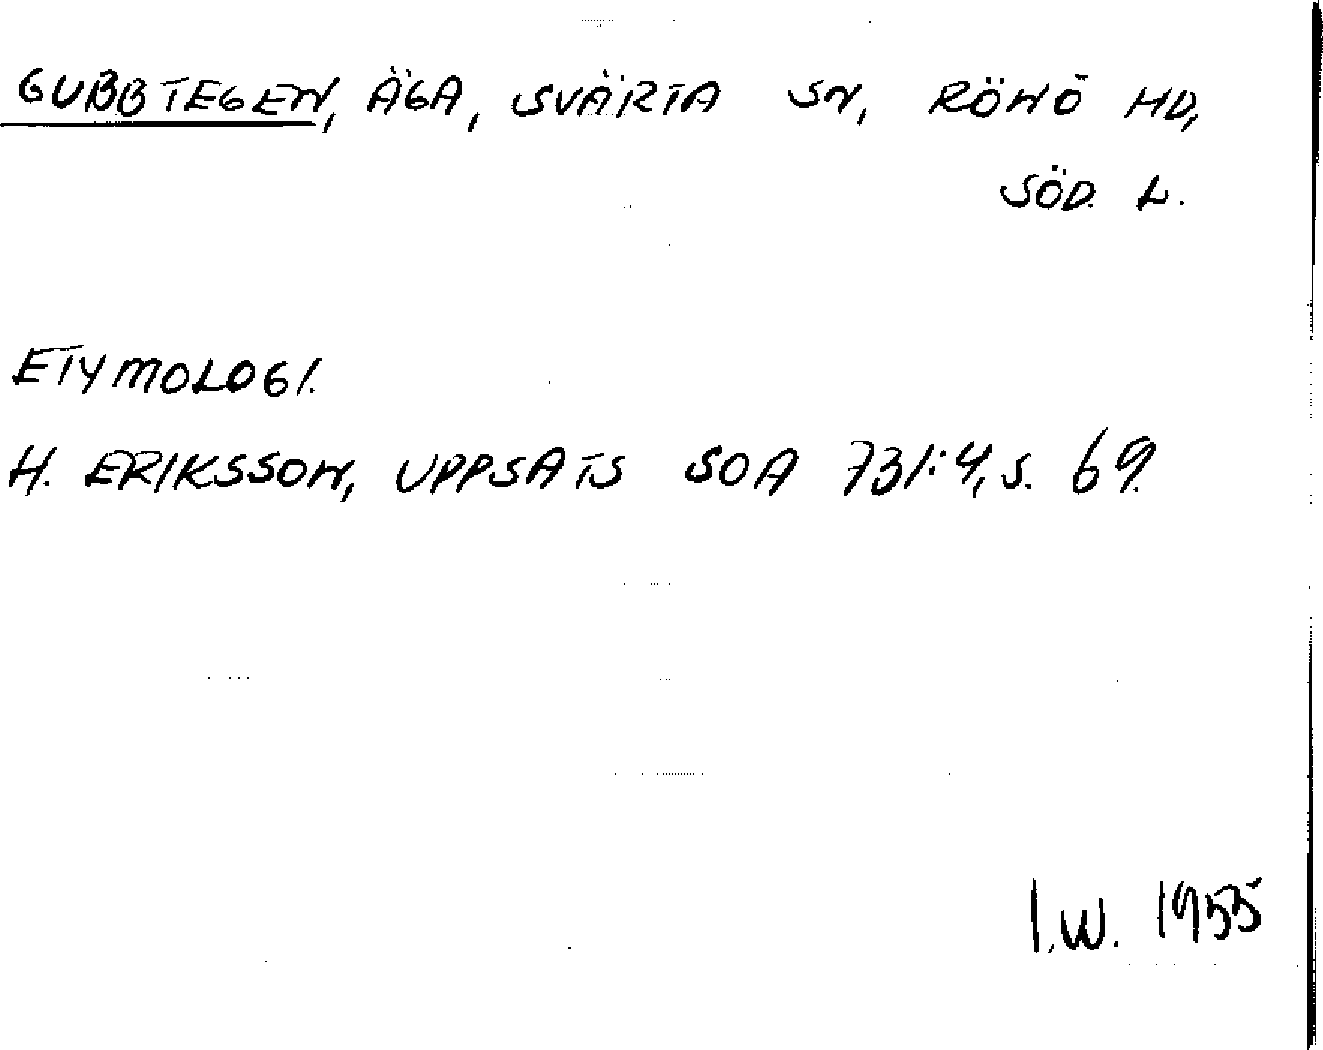 GUBBTEGEN, ÄGA, SVÄRTA SN, RÖNÖ HD,
SÖD. L.
ETYMOLOGI.
H. ERIKSSON, UPPSATS SOA 731:4, S. 69.
I.W. 1955